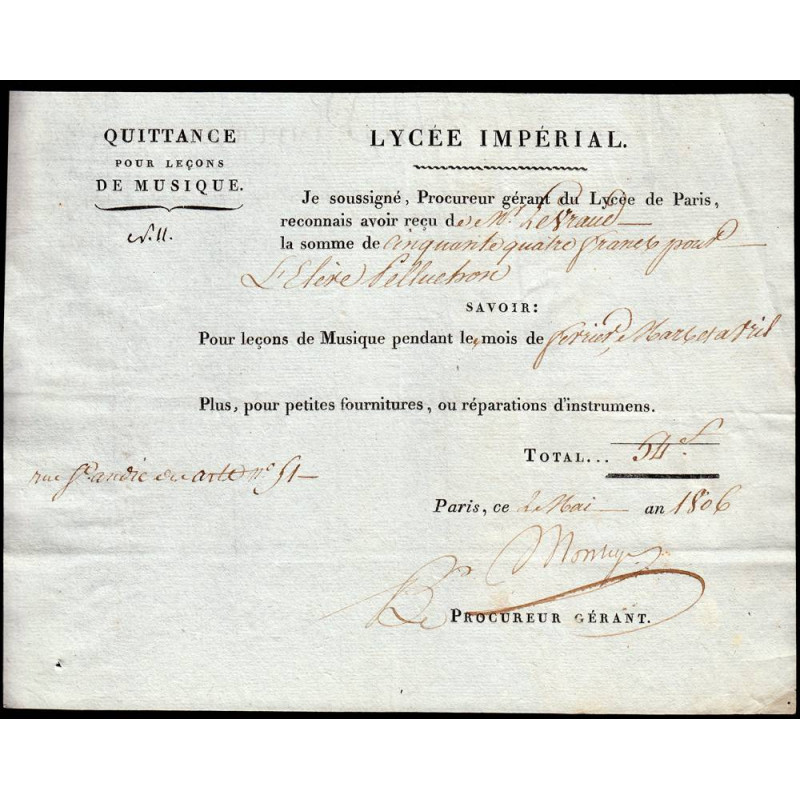 QUITTANCE
POUR LEÇONS
DE MUSIQUE.
LYCÉE IMPÉRIAL.
Je soussigné, Procureur gérant du Lycée de Paris,
reconnais avoir reçu de Mr. Levraud
la somme de cinquante quatre francs pour
L'Elève Pelluchon
SAVOIR:
Pour leçons de Musique pendant les mois de fevrier, Mars et avril
Plus, pour petites fournitures, ou réparations d'instrumens.
TOTAL... 54 f.
rue St. andré des arts no. 51
Paris, ce 2 Mai an 1806
PROCUREUR GÉRANT.